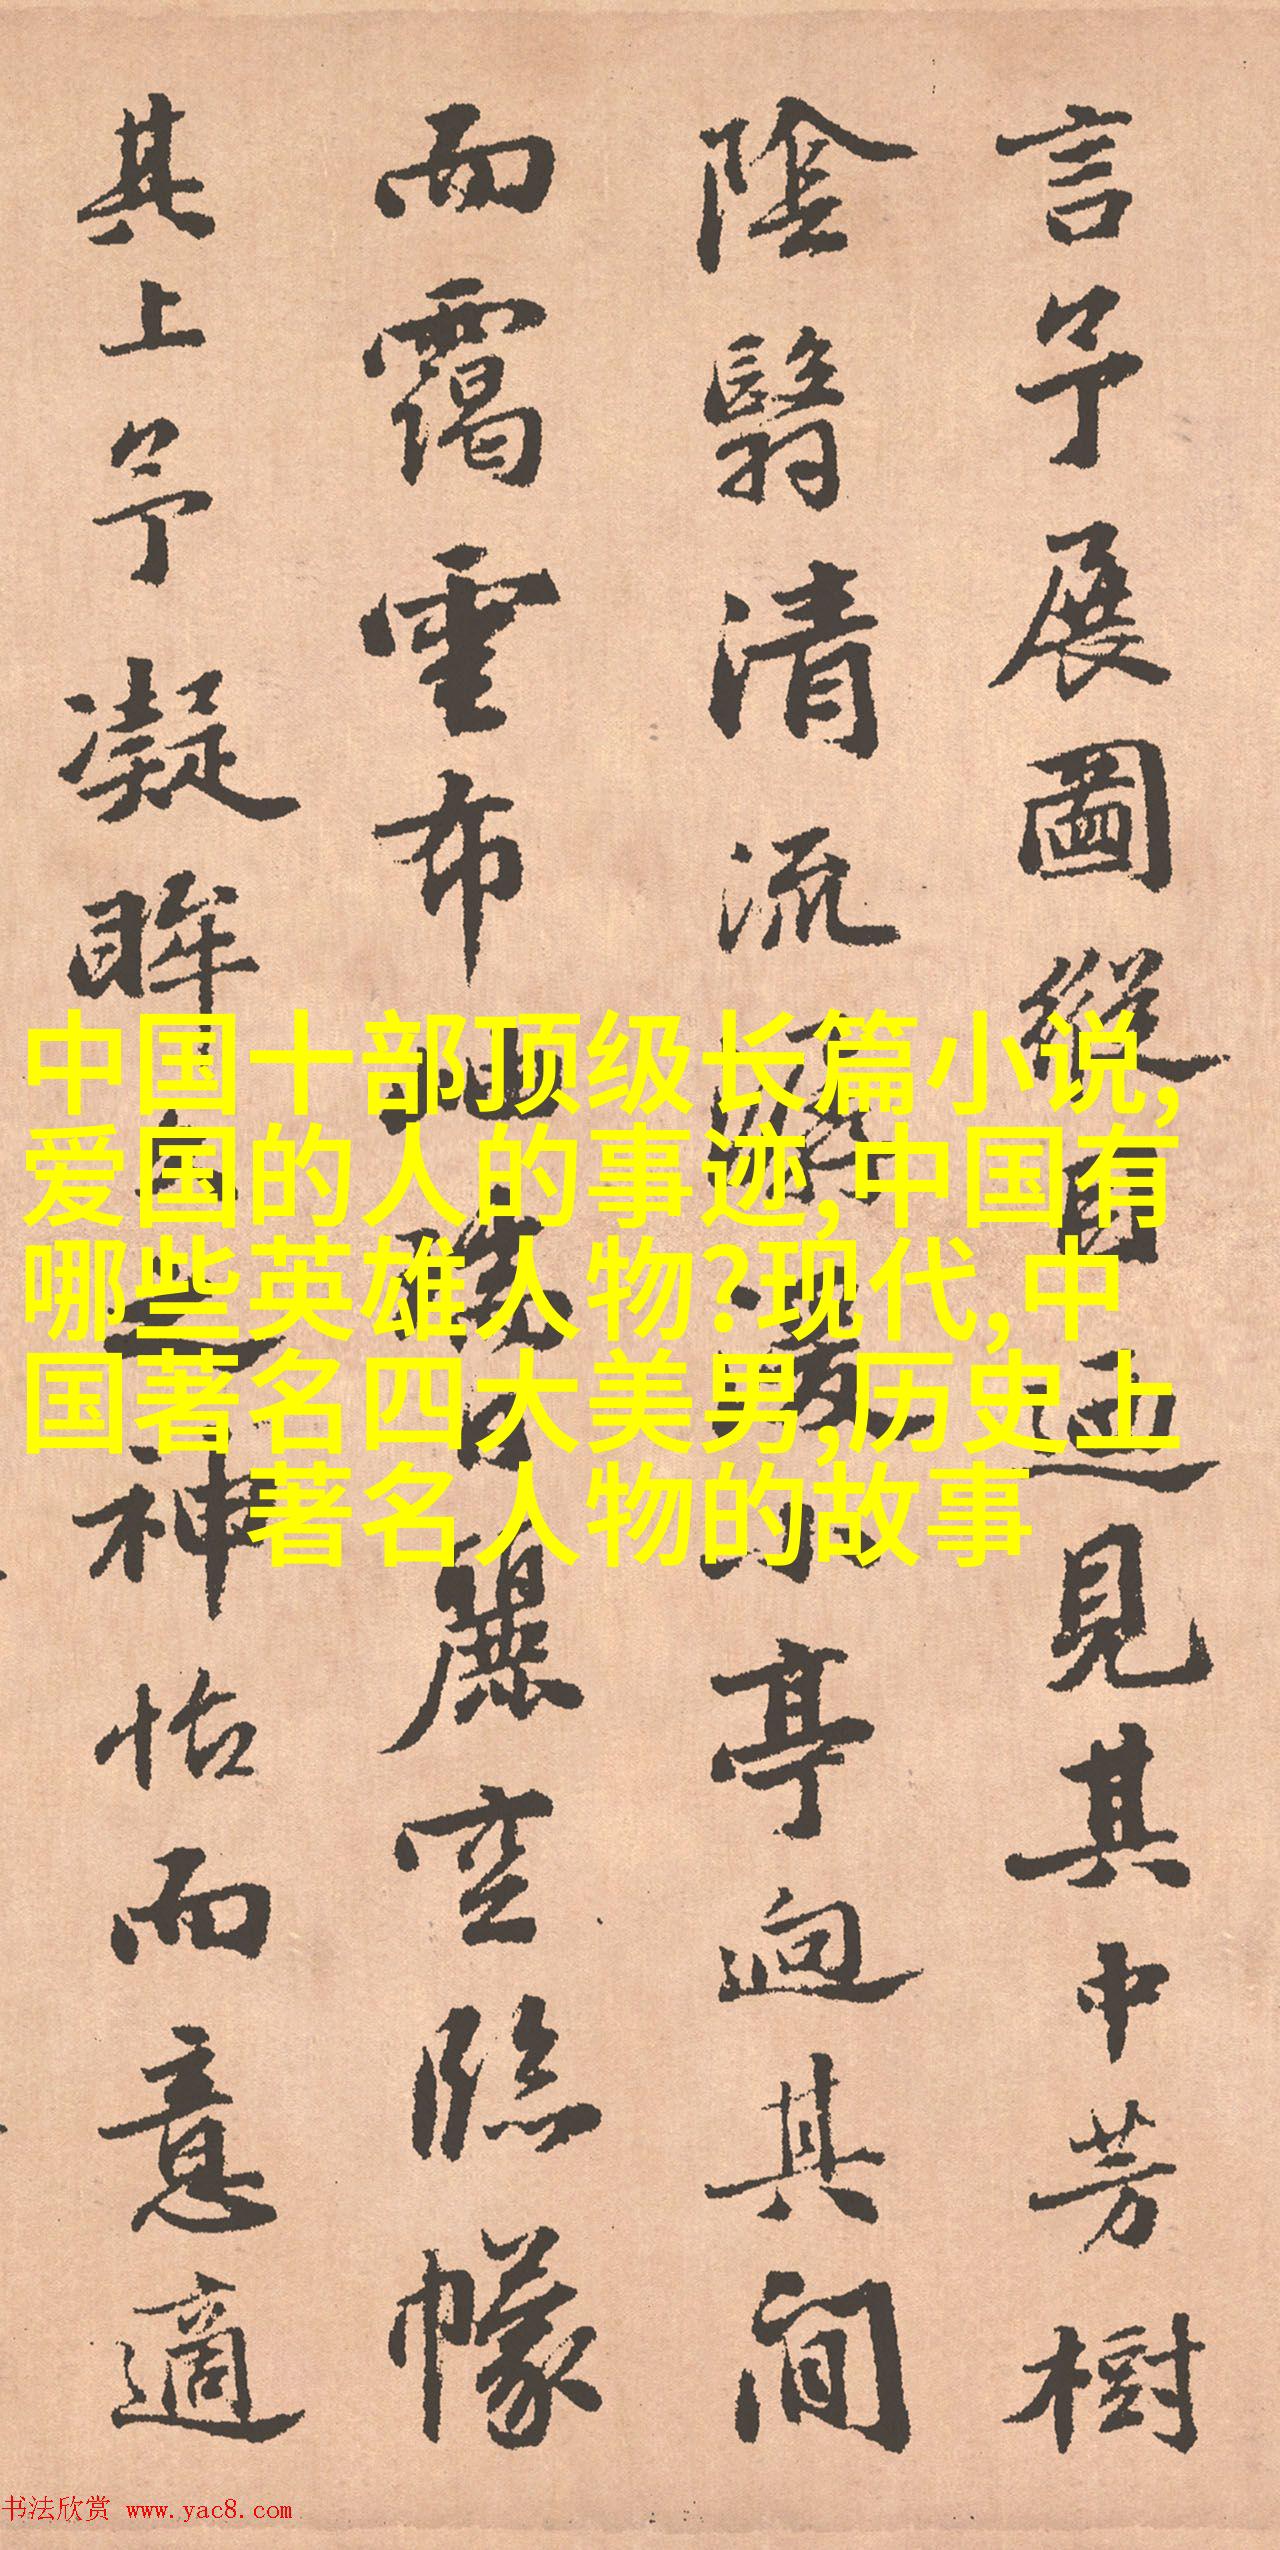 言予展圖縱目迺見其中芳樹
陰翳清流小亭迥其間
而靄雲布日麗空臨幪
其上予凝眸之神怡而意適
中国十部顶级长篇小说,
爱国的人的事迹,中国有
哪些英雄人物?现代,中
国著名四大美男,历史上
著名人物的故事
书法欣赏 www.yac8.com